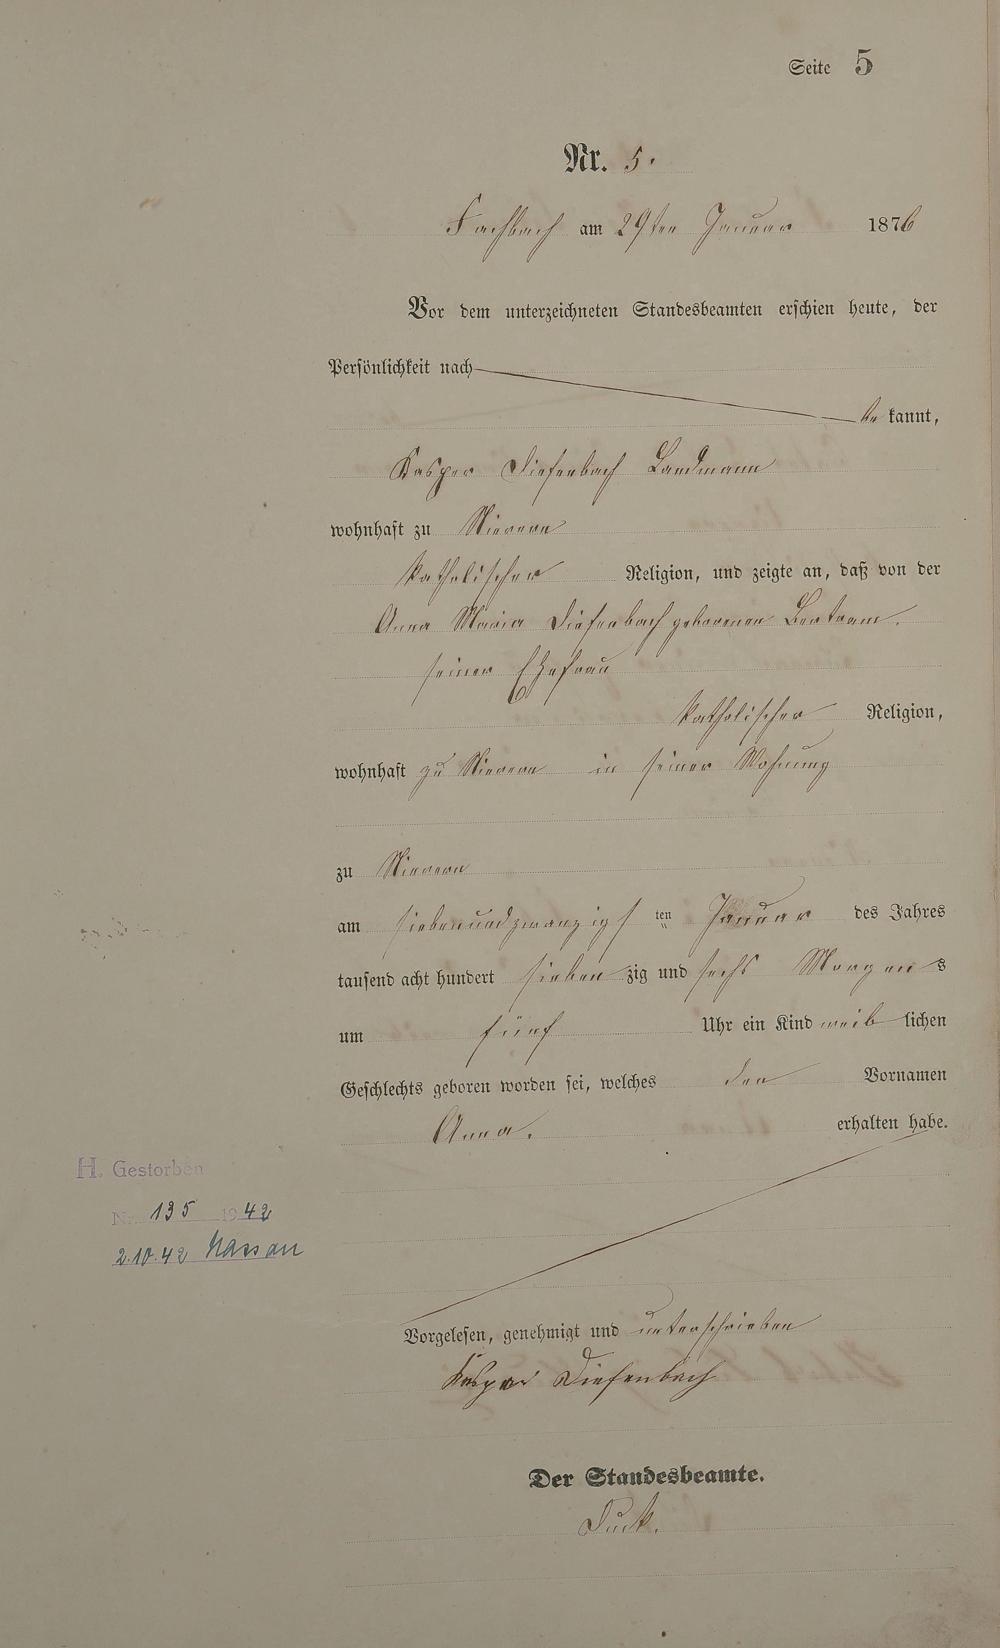 Seite 5
Nr. 5.
Fachbach am 29ten Januar 1876
Vor dem unterzeichneten Standesbeamten erschien heute, der
Persönlichkeit nach
be kannt,
Kasper Diefenbach Landmann
wohnhaft zu Nievern
katholischer Religion, und zeigte an, daß von der
Anna Maria Diefenbach geborenen Bertram.
seiner Ehefrau
katholischer Religion,
wohnhaft zu Nievern in seiner Wohnung
zu Nievern
am siebenundzwanzigs ten Januar des Jahres
tausend acht hundert sieben zig und sechs Morgens
um fünf Uhr ein Kind weib lichen
Geschlechts geboren worden sei, welches den Vornamen
Anna. erhalten habe.
H. Gestorben
Nr. 135 1942
2.10.42 Nassau
Vorgelesen, genehmigt und unterschrieben
Kasper Diefenbach
Der Standesbeamte.